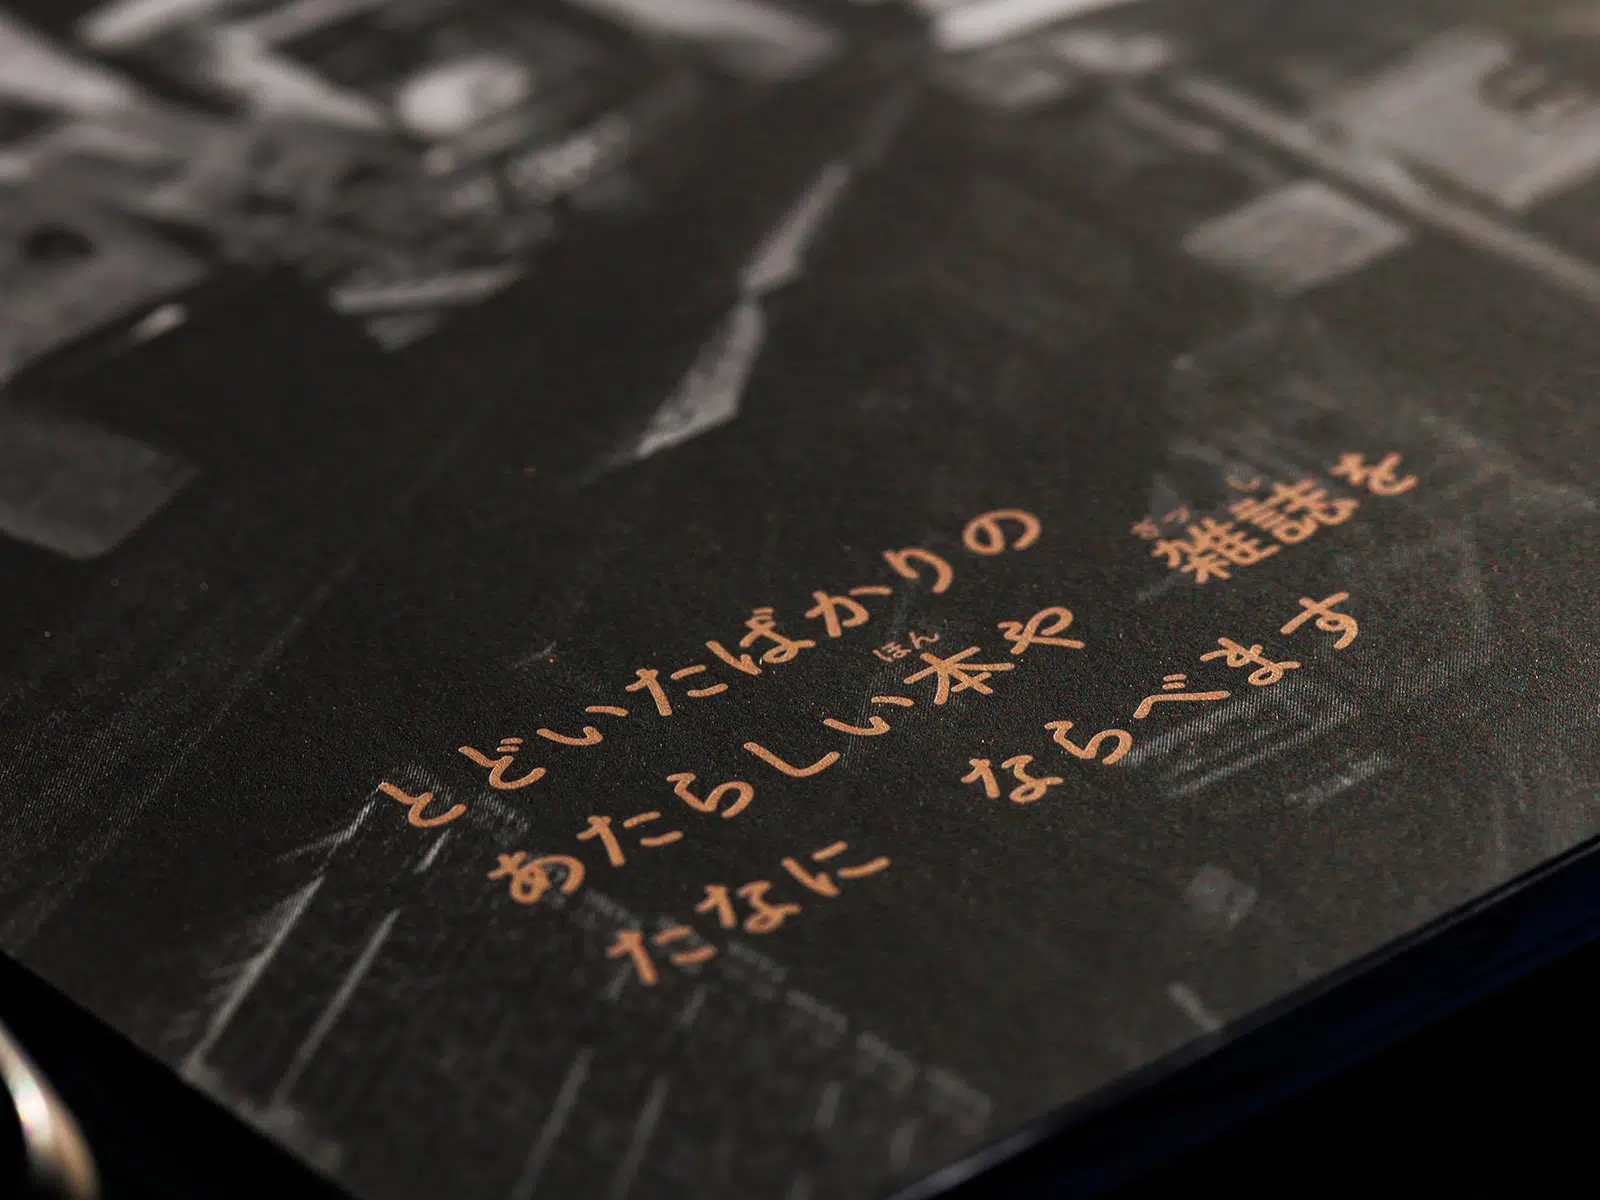 とどいたばかりの
ほん ざっし
あたらしい本や 雑誌を
たなに ならべます